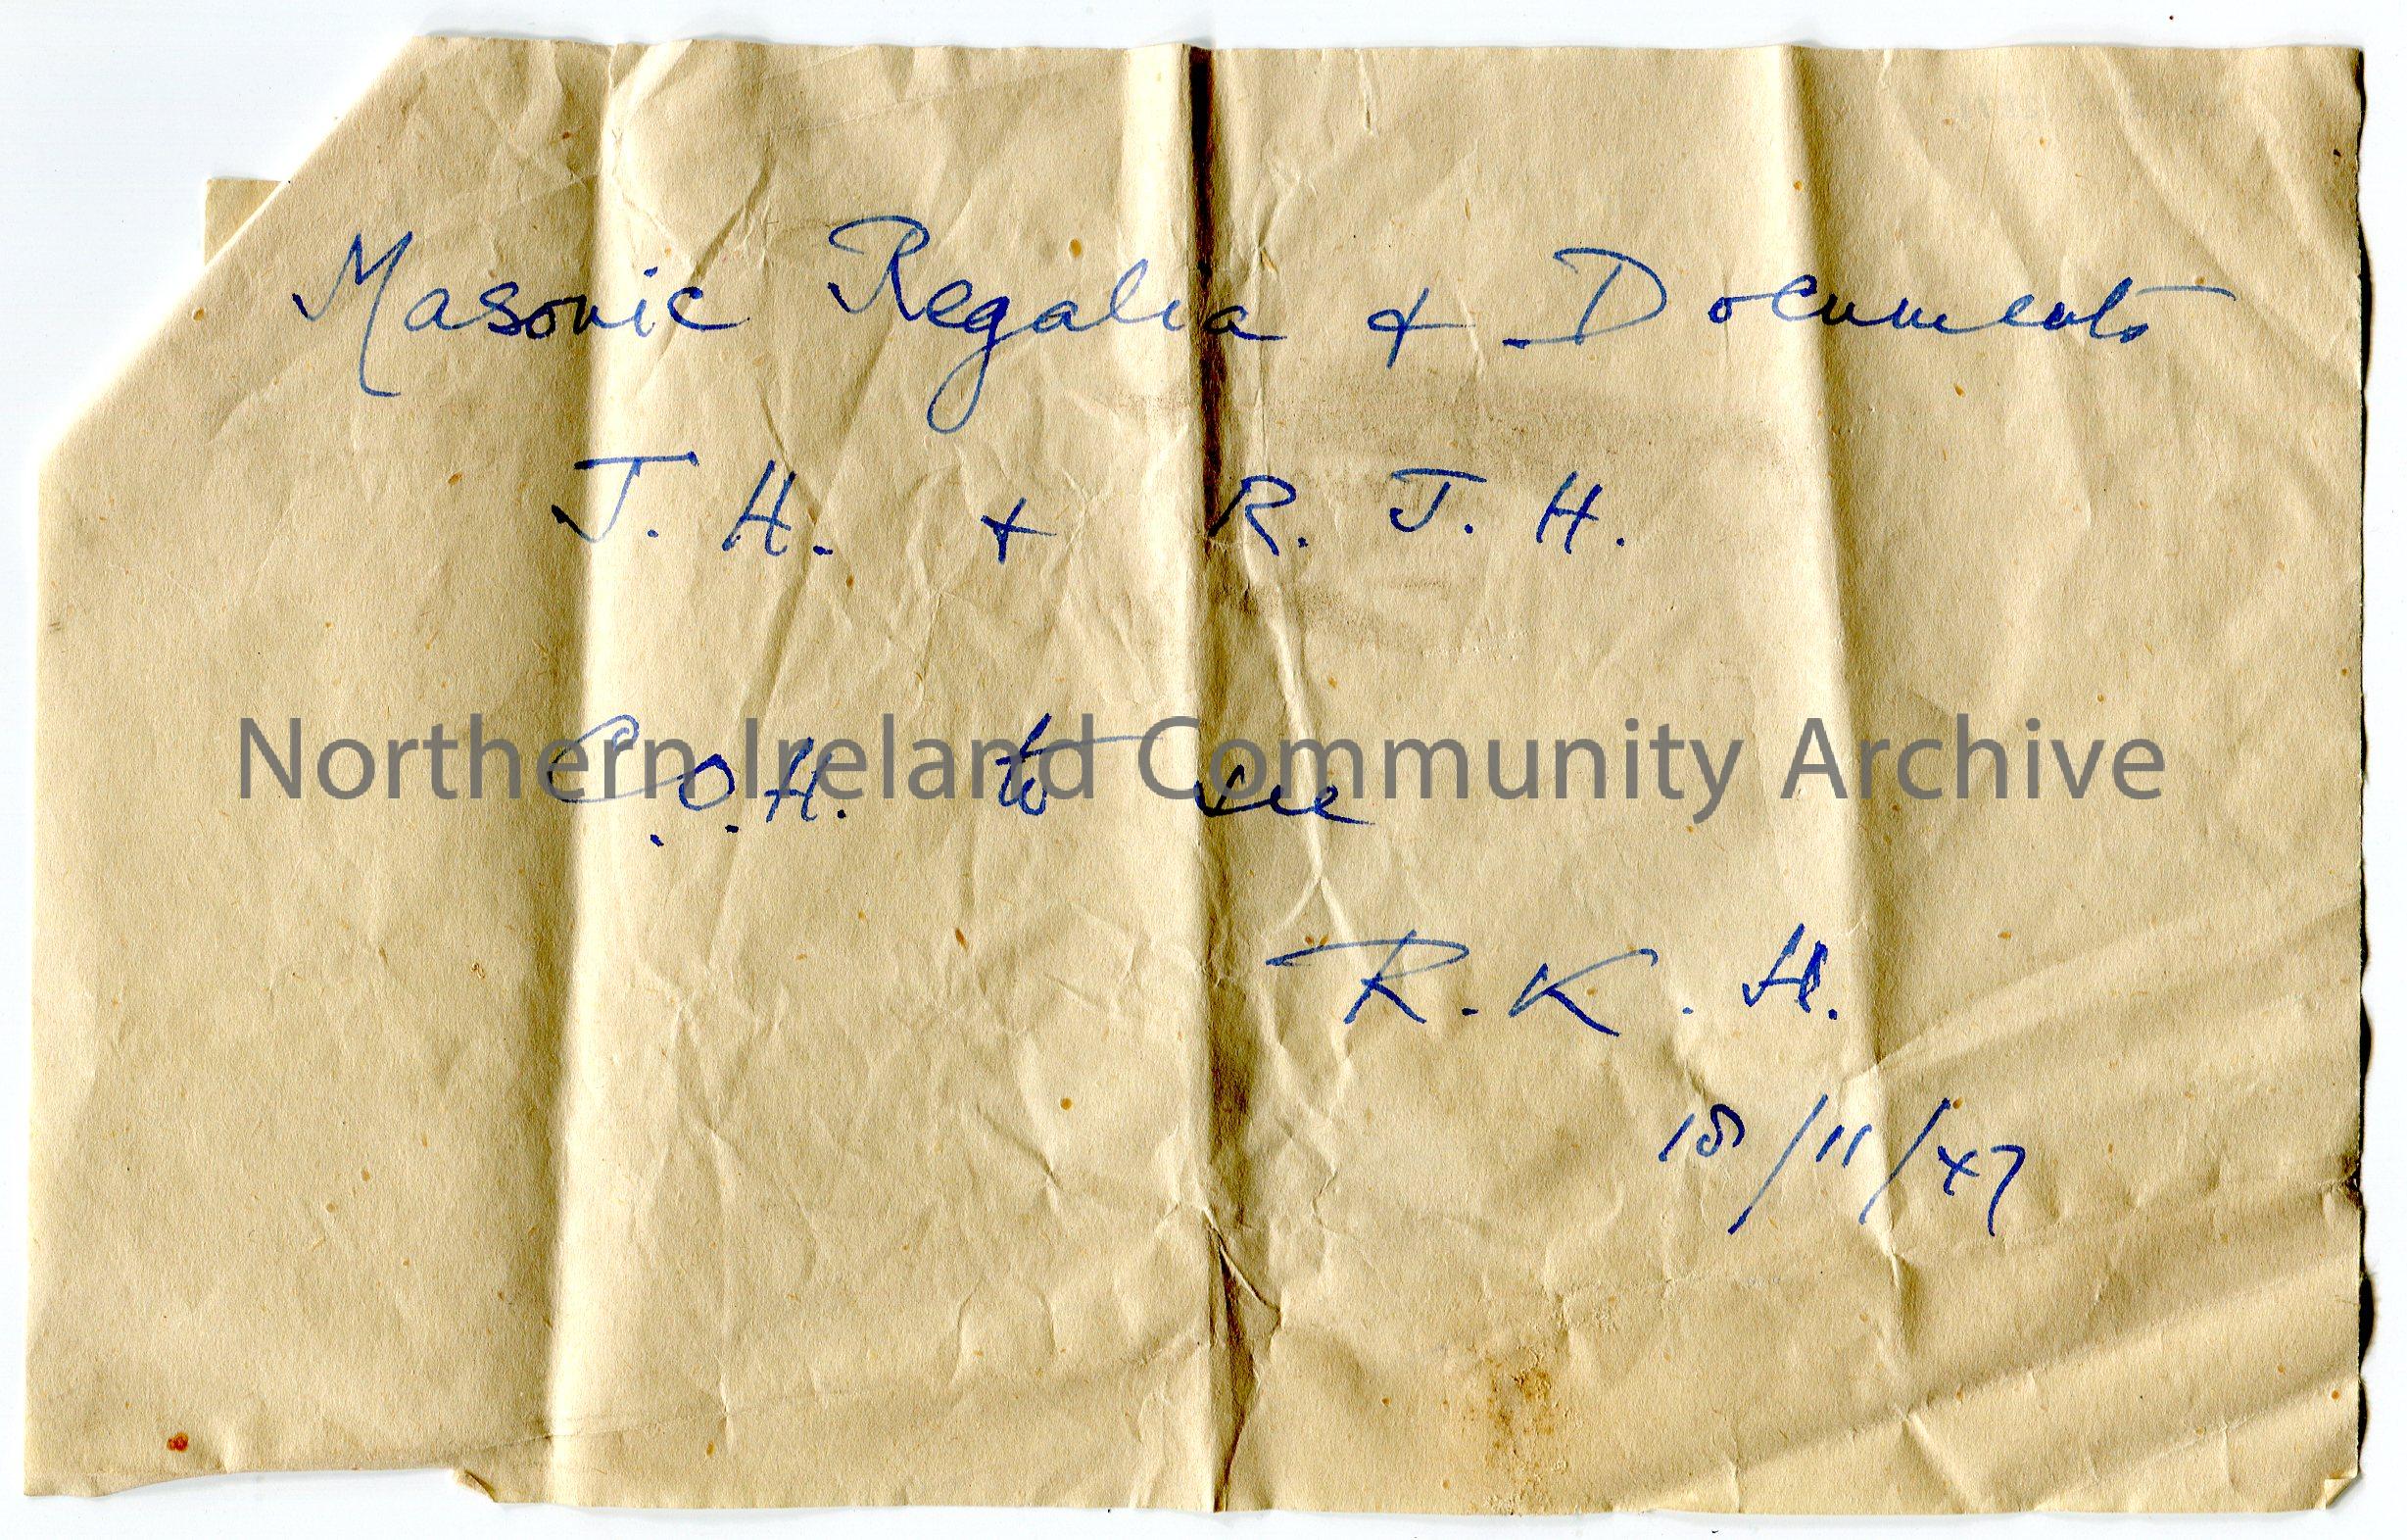 Masonic Regalia + Documents
J. H. + R. J. H.
Northern Ireland Community Archive
C.O.H. to see
R.K.H.
18/11/47